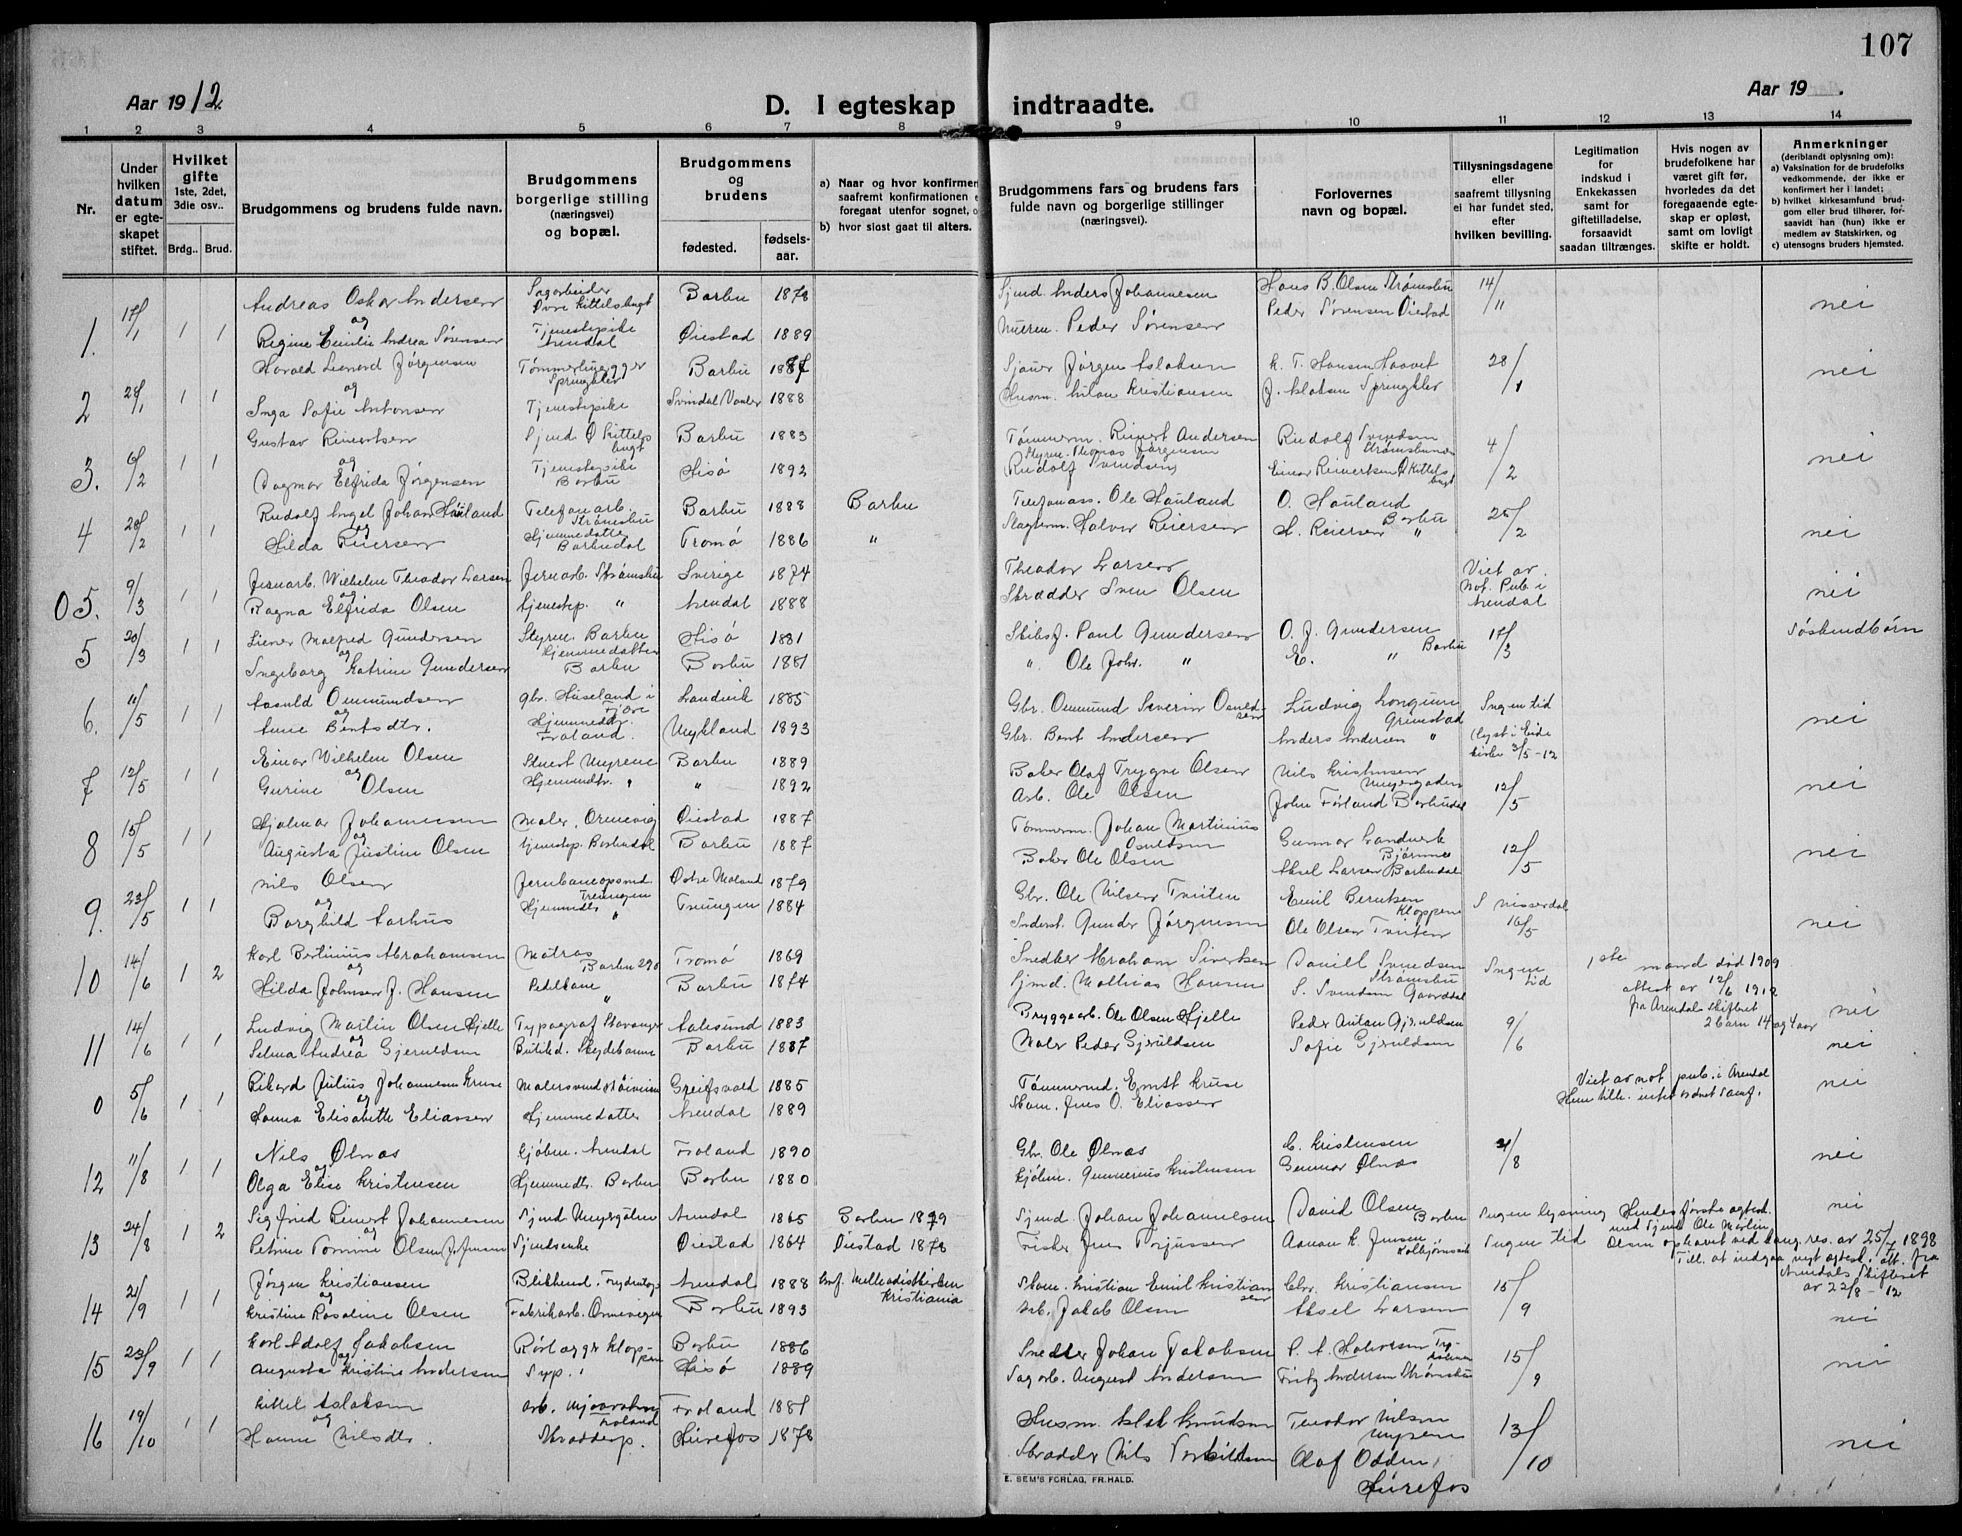 107
Aar 1912.
D. I egteskap indtraadte.
Aar 19 .
1 2 3 4 5 6 7 8 9 10 11 12 13 14
Nr.
Under hvilken datum er egteskapet stiftet.
Hvilket gifte 1ste, 2det, 3die osv..
Brdg.. Brud.
Brudgommens og brudens fulde navn.
Brudgommens borgerlige stilling (næringsvei) og bopæl.
Brudgommens og brudens
fødested. fødselsaar.
a) Naar og hvor konfirmer
saafremt konfirmationen e
foregaat utenfor sognet, o
b) hvor sidst gaat til alters.
Brudgommens fars og brudens fars fulde navn og borgerlige stillinger (næringsvei).
Forlovernes navn og bopæl.
Tillysningsdagene eller saafremt tillysning ei har fundet sted, efter hvilken bevilling.
Legitimation for indskud i Enkekassen samt for giftetilladelse, forsaavidt saadan tiltrænges.
Hvis nogen av brudefolkene har været gift før, hvorledes da det foregaaende egteskap er opløst, samt om lovligt skifte er holdt.
Anmerkninger (deriblandt oplysning om): a) Vaksination for de brudefolks vedkommende, der ikke er konfirmert her i landet; b) hvilket kirkesamfund brudgom eller brud tilhører, forsaavidt han (hun) ikke er medlem av Statskirken, og c) utensogns bruders hjemsted.
1. 17/1 1 1 Andreas Oskar Andersen Sagarbeider Øvre Kittelsbugt Barbu 1878 Sjmd. Anders Johannesen Hans B. Olsen Strømsbu 14/11 nei
og
Regine Emilie Andrea Sørensen Tjenestepike Arendal Øiestad 1889 Peder Sørensen Peder Sørensen Øiestad
2 28/1 1 1 Harald Lienerd Jørgensen Tømmerlægger Springkler Barbu 1887 Sjauer Jørgen Aslaksen K. T. Hansen Haavet 28/1 nei
og
Inga Sofie Antonsen Tjenestepike Svindal Vanler 1888 Husm. Kristiansen J. Aslaksen Springkler
3. 6/2 1 1 Gustav Reinertsen Sjmd. Ø Kittelsbugt Barbu 1883 Tømmerm. Reinert Andersen Rudolf Svendsen Strømsbuneset 4/2 nei
og
Dagmar Elfrida Jørgensen Tjenestepike Barbu Hisø 1892 Styrm. Thomas Jørgensen Rudolf Svendsen Einar Reinertsen Ø Kittelsbugt
4 28/2 1 1 Rudolf Angel Johan Hauland Telefonarb. Strømsbu Barbu 1888 Barbu Telefonass. Ole Hauland O. Hauland Barbu 25/2 nei
og
Hilda Reiersen Hjemmedatter Barbudal Tromø 1886 " Halvor Reiersen H. Reiersen "
05. 9/3 1 1 Jernarb. Wilhelm Theodor Larsen Jernarb. Strømsbu Sverige 1874 Theodor Larsen Viet av Not. Pub. i Arendal nei
og
Ragna Elfrida Olsen tjenestep. " Arendal 1888 Skrædder Sven Olsen
5 20/3 1 1 Liener Malfred Gundersen Styrm. Barbu Hisø 1881 Skibsf. Paul Gundersen O. J. Gundersen Barbu 17/3 Søskendbørn
og
Ingeborg Katrine Gundersen Hjemmedatter Barbu Barbu 1881 " Ole Johr. " E. "
6. 11/5 1 1 Aasuld Ommundsen gbr. Huseland i Fjære Landvik 1885 Gbr. Ommund Severin Ludvig Longum Grimstad Ingen tid nei
og
Anne Bentsdtr. Hjemmedtr. Froland. Mykland 1893 Gbr. Bent Andersen Anders Andersen " (lyst i Eide kirke 3/5-12
7 12/5 1 1 Einar Wilhelm Olsen Stuert Myrene Barbu 1889 Baker Olaf Trygve Olsen Nils Kristensen Myrergaden 12/5 nei
og
Gurine Olsen Hjemmedtr. " " 1892 Arb. Ole Olsen John Førland Barbudal
8 15/5 1 1 Hjalmar Johannesen Maler, Ormevig Øiestad 1887 Tømmerm. Johan Martinius Gunnar Landverk Bjørnnes 12/5 nei
og
Augusta Justine Olsen tjenestep. Barbudal Barbu 1887 Baker Ole Olsen Aksel Larsen Barbudal
9. 23/5 1 1 Nils Olsen Jernbaneopsynd Treungen Østre Moland 1879 Gbr. Ole Nilsen Tveiten Emil Berntsen Kloppene I Nisserdal 16/5 nei
og
Borghild Aarhus Hjemmedtr. " Treungen 1884 Inderst. Gunder Jørgensen Ole Olsen Tveiten
10 14/6 1 2 Karl Bertinius Abrahamsen Matros Barbu 290 Tromø 1869 Snedker Abraham Sivertsen Daniel Svendsen Strømsbu Ingen tid 1ste mand død 1909 attest av 12/6 1912 fra Arendals Skifteret 2 barn 14 og 4 aar nei
og
Hilda Johnsen f. Hansen Pedelkone " Barbu 1874 Sjmd. Mathias Hansen S. Svendsen Gaarddal
11 14/6 1 1 Ludvig Martin Olsen Hjelle Typograf Stavanger Aalesund 1883 Bryggearb. Ole Olsen Hjelle Peder Anton Gjeruldsen 9/6 nei
og
Selma Andrea Gjeruldsen Butikd. Skydebanen Barbu 1887 Maler Peder Gjeruldsen Sofie Gjeruldsen
0 5/6 1 1 Rikard Julius Johannesen Kruse Malersvend Greifsvald 1885 Tømmermd. Ernst Kruse Viet av not. pub. i Arendal nei
og
Hanna Elisabette Eliassen Hjemmedatter Arendal 1889 Skom. Jens O. Eliassen
12 11/8 1 1 Nils Ølnæs Kjøbm. Arendal Froland 1890 Gbr. Ole Ølnæs C. Kristensen 4/8 nei
og
Olga Elise Kristensen Hjemmedtr. Barbu Barbu 1880 Kjøbm. Gunnerius Kristensen Gunnar Ølnæs
13 24/8 1 2 Sigfried Reinert Johannesen Sjmd Arendal 1865 Barbu 1879 Sjmd. Johan Johannesen David Olsen Barbu Ingen lysning Hendes første egtesk. med Sjmd Ole Martin nei
og
Petrine Tomine Olsen f. Jensen Sjmdsenke Øiestad 1864 Øiestad 1878 Fisker Jens Torjussen Aanon K. Jensen Kolbjørnsvik Ingen tid Olsen ophævet ved kong. res. av 25/7 1898 Till. at indgaa nyt egtesk. i att. fra Arendals Skifteret av 22/8-12
14 21/9 1 1 Jørgen Kristiansen Blikkensl. Arendal 1888 konf. Methodistkirken Kristiania Skom. Kristian Emil Kristiansen Chr. Kristiansen 15/9 nei
og
Kristine Rosaline Olsen Fabrikarb. Ormevigen Barbu 1893 Arb. Jakob Olsen Aksel Larsen
15 23/9 1 1 Karl Adolf Jakobsen Rørlægger Kloppen Barbu 1886 Snedker Johan Jakobsen P. A. Halvorsen 15/9 nei
og
Augusta Kristine Andersen Syp. " Hisø 1889 Sagarb. August Andersen Fritz Andersen Strømsbu
16 19/10 1 1 Kittil Aslaksen Arb. Froland Froland 1881 Husm. Aslak Knudsen Teodor Nilsen Myrene 13/10 nei
og
Hanne Nilsdtr. Skrædderp. Hurefos 1878 Skrædder Nils Torkildsen Olaf Odden, Hurefos
E. SEM'S FORLAG, FR.HALD.